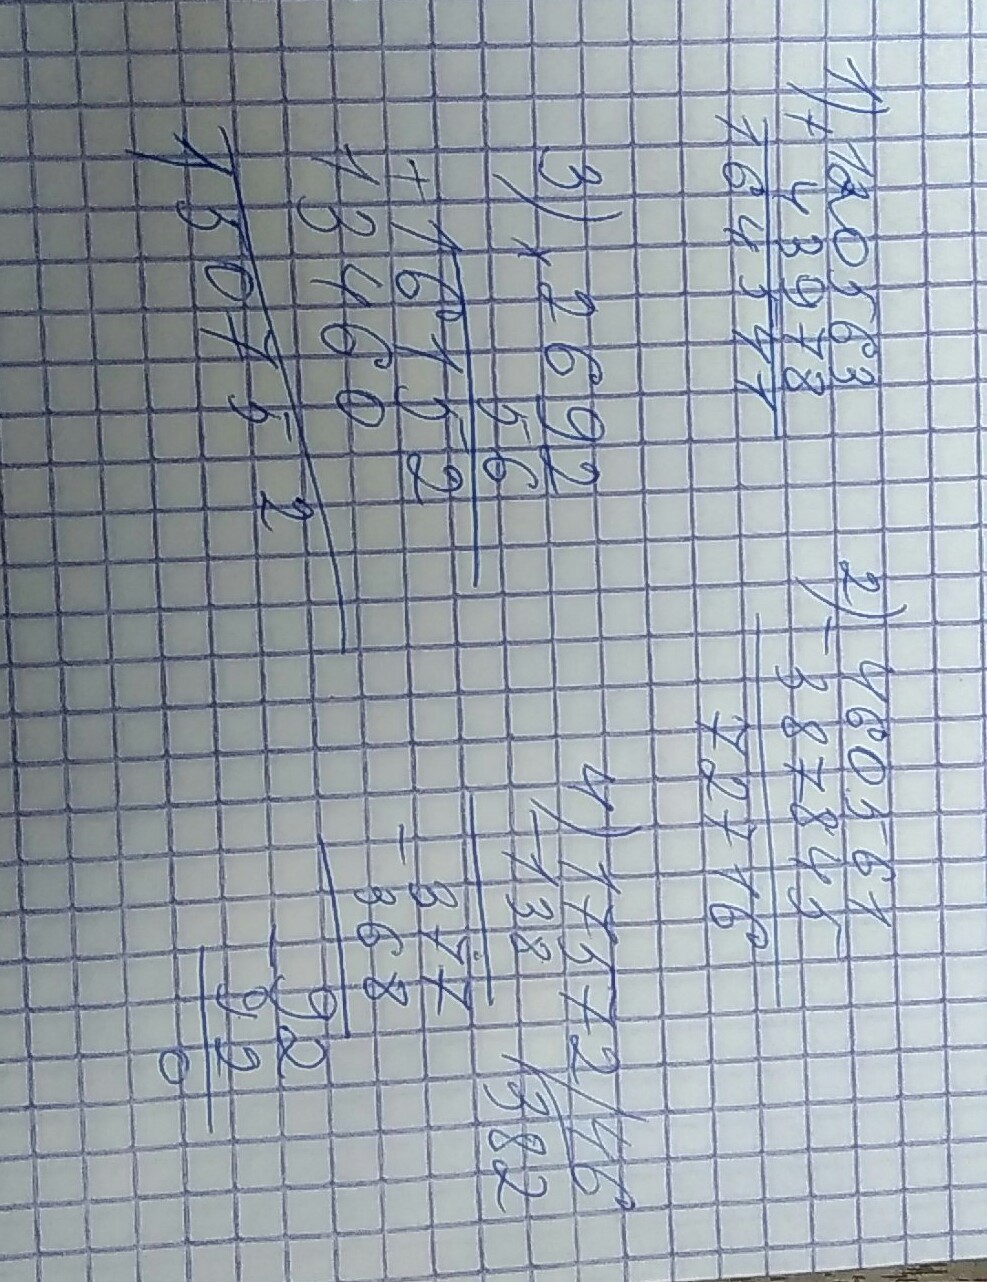 1) 120563
+ 43978
164541
2) 460561
- 387845
72716
3) × 2692
56
+ 16152
13460
150752
4) 17572 / 46
- 138 / 382
377
- 368
92
- 92
0